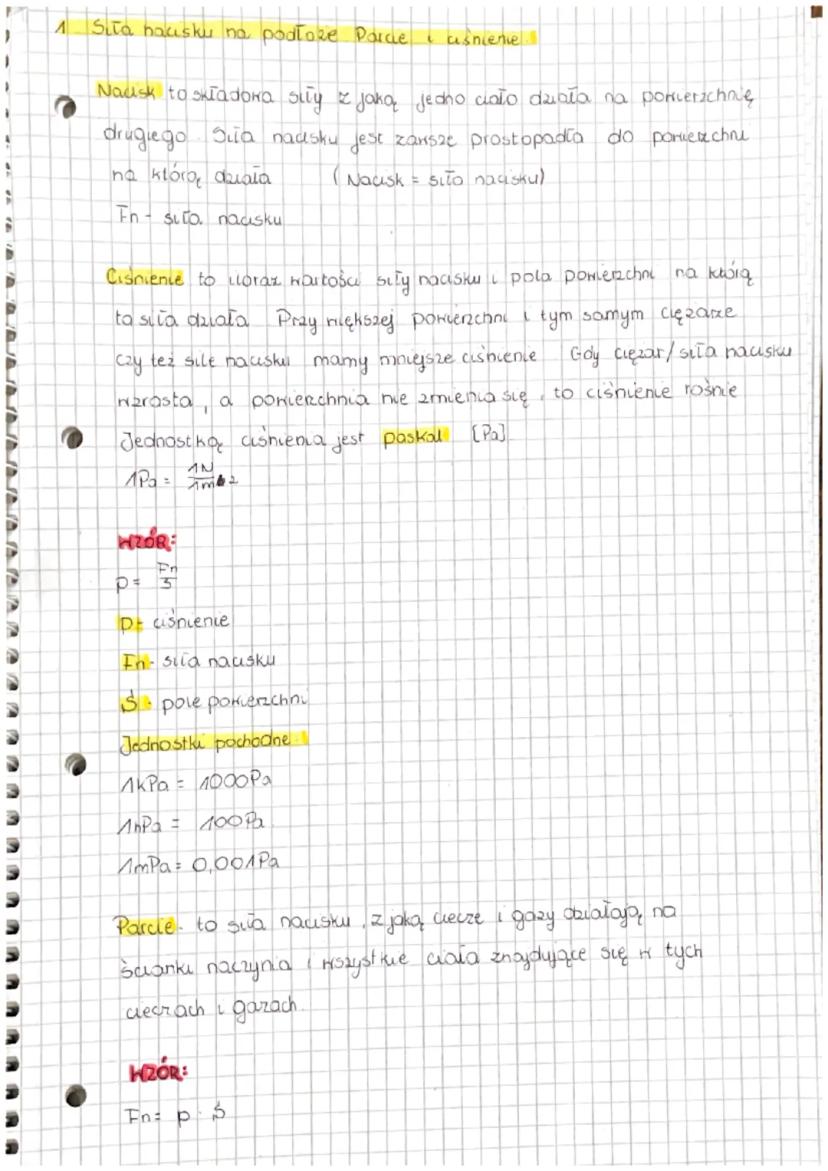 1 Siła nacisku na podłoże Parcie i ciśnienie.
Nacisk to składowa siły z jaką jedno ciało działa na powierzchnię
drugiego. Siła nacisku jest zawsze prostopadła do powierzchni
na którą działa (Nacisk = siła nacisku)
Fn - siła nacisku
Ciśnienie to iloraz wartości siły nacisku i pola powierzchni na którą
ta siła działa Przy większej powierzchni i tym samym ciężarze
czy też sile nacisku mamy mniejsze ciśnienie Gdy ciężar/siła nacisku
wzrasta, a powierzchnia nie zmienia się, to ciśnienie rośnie
Jednostką ciśnienia jest paskal [Pa]
1Pa = 1N/1m2
WZÓR:
p = Fn/S
p - ciśnienie
Fn - siła nacisku
S - pole powierzchni
Jednostki pochodne:
1kPa = 1000Pa
1hPa = 100Pa
1mPa = 0,001Pa
Parcie - to siła nacisku, z jaką ciecze i gazy działają na
ścianki naczynia i wszystkie ciała znajdujące się w tych
cieczach i gazach.
WZÓR:
Fn = p · S